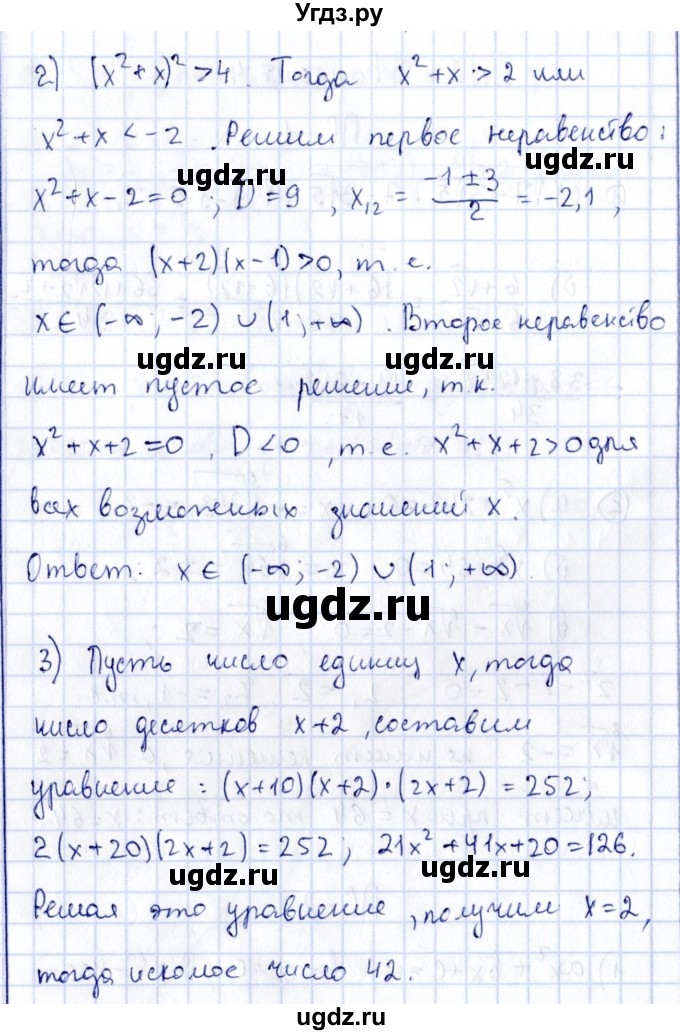 Угдз.ру
2) (x²+x)²>4. Тогда x²+x>2 или
x²+x<-2. Решим первое неравенство:
ugdz.ru ugdz.ru
x²+x-2=0; D=9, x₁₂ = (-1±3)/2 = -2,1,
тогда (x+2)(x-1)>0, т.е.
x∈(-∞;-2)∪(1;+∞). Второе неравенство
ugdz.ru ugdz.ru
имеет пустое решение, т.к.
x²+x+2=0, D<0, т.е. x²+x+2>0 для
ugdz.ru ugdz.ru
всех возможных значений x.
Ответ: x∈(-∞;-2)∪(1;+∞).
ugdz.ru
3) Пусть число единиц x, тогда
ugdz.ru ugdz.ru
число десятков x+2, составим
уравнение: (x+10)(x+2)·(2x+2)=252;
2(x+20)(2x+2)=252; 21x²+41x+20=126.
ugdz.ru ugdz.ru
Решая это уравнение, получим x=2,
тогда искомое число 42.
ugdz.ru ugdz.ru